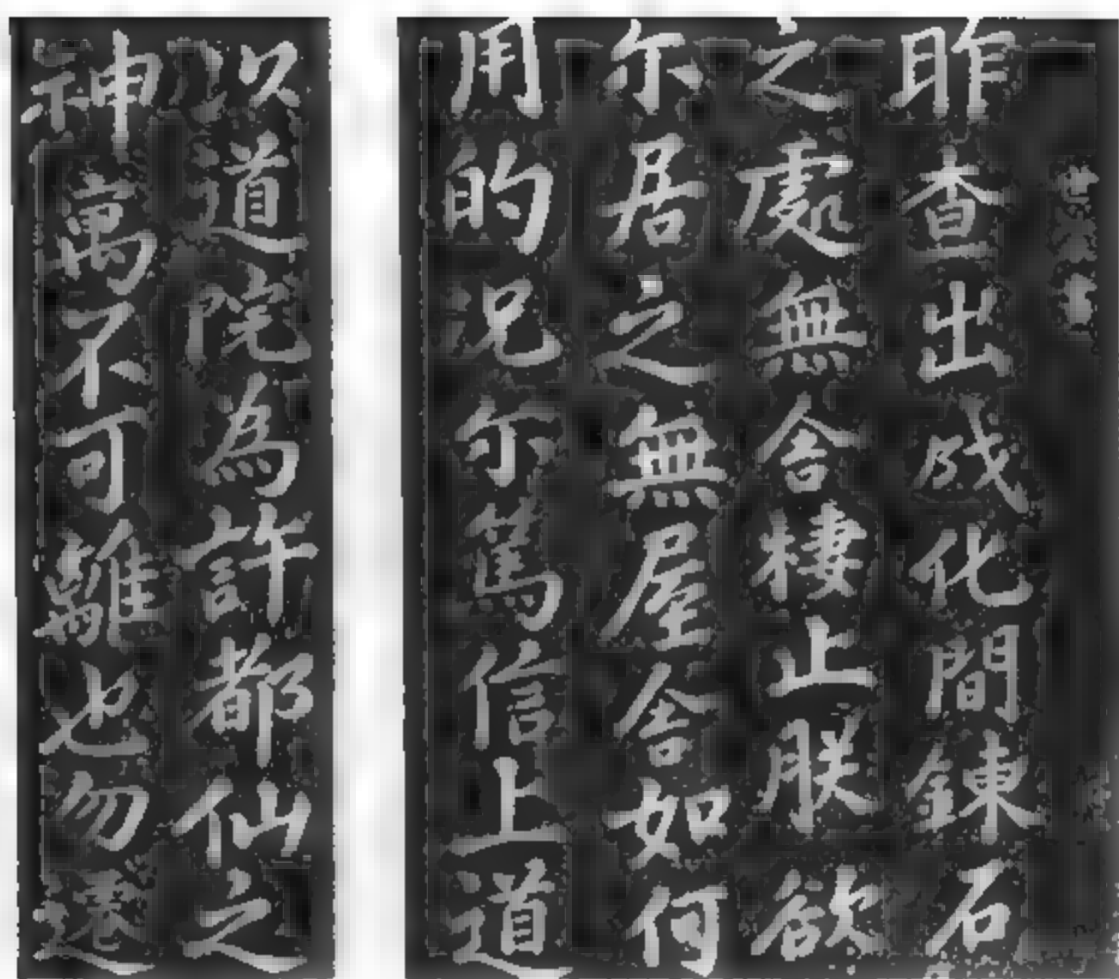 昨查出成化間鍊石
之處無舍棲止朕欲
尓居之無屋舍如何
用的況尓篤信上道
以道院為許都仙之
神萬不可離也勿遷